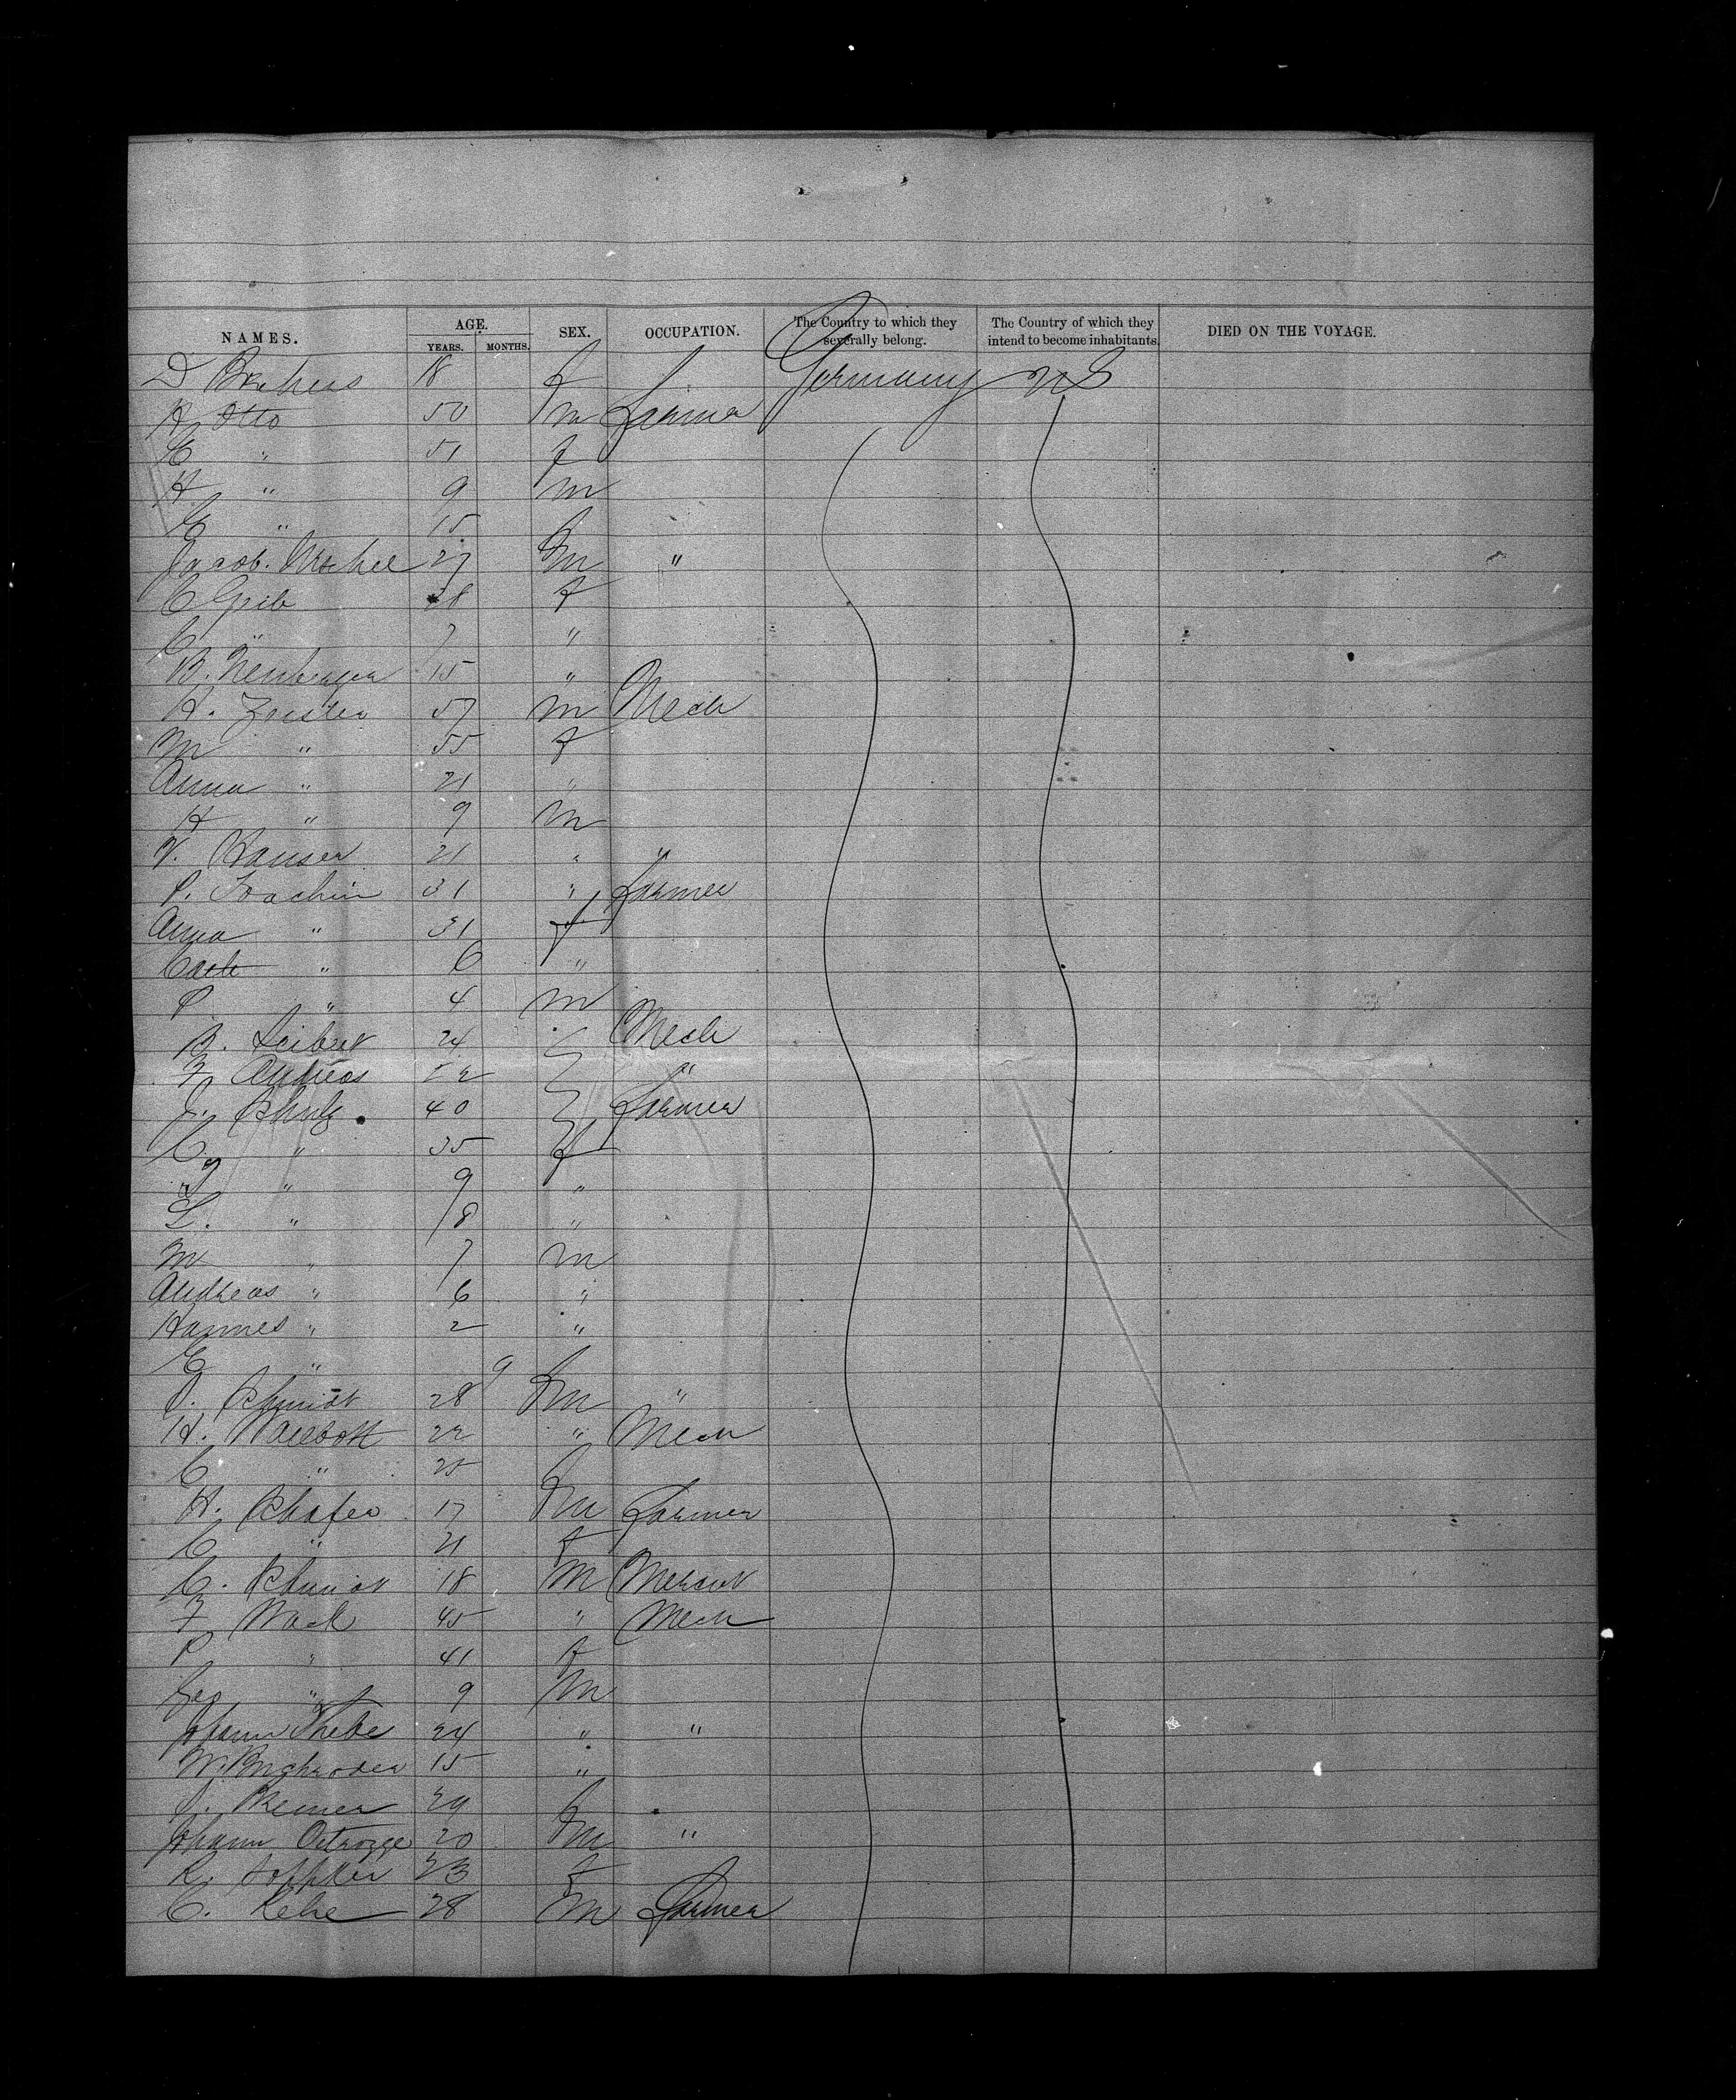 NAMES. AGE. YEARS. MONTHS. SEX. OCCUPATION. The Country to which they severally belong. The Country of which they intend to become inhabitants. DIED ON THE VOYAGE.
D 18 f Germany US
H Otto 50 m Farmer
C " 51 f
H " 9 m
C " 15 f
Jacob 27 m "
C Greib 28 f
C " 7 "
B. 15 "
H. 57 m Mech
M " 55 f
Anna " 21 "
H " 9 m
V. Hauser 21 " "
P. Joachim 31 " Farmer
Anna " 31 f
Cath " 6 "
P " 4 m
B. Seibert 24 Mech
F Andreas "
J. Schulz 40 Farmer
C. " 35 f
" 9 "
L. " 8 "
M " 7 m
Andreas " 6 "
Hannes " 2 "
E " 9 f
J. Schmidt 28 m "
H. Wallbott 22 " Mech
C " 25 f
H. Schafer 17 m Farmer
C " 21 f
C. Schmidt 18 m
F Wack 45 " Mech
P " 41 f
Geo " 9 m
Johann Thebe 24 " "
W. 15 "
J. 29 f
Johann 20 m "
R. 23 f
C. Kehe 28 m Farmer